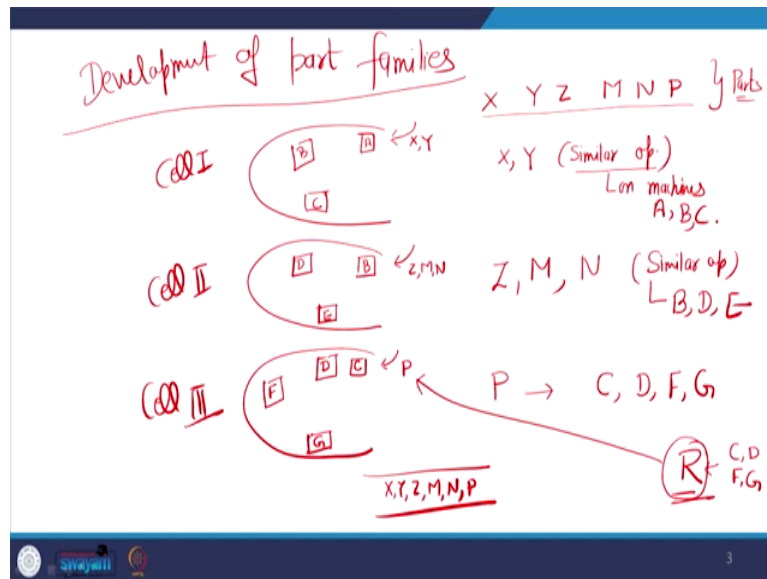 Development of part families
X Y Z M N P } Parts
Cell I
B A X,Y
C
X, Y (Similar op.)
on machines
A, B, C.
Cell II
D B Z,M,N
E
Z, M, N (Similar op)
B, D, E
Cell III
F D C P
G
P → C, D, F, G
R C,D
F,G
X,Y,Z,M,N,P
swayam
3